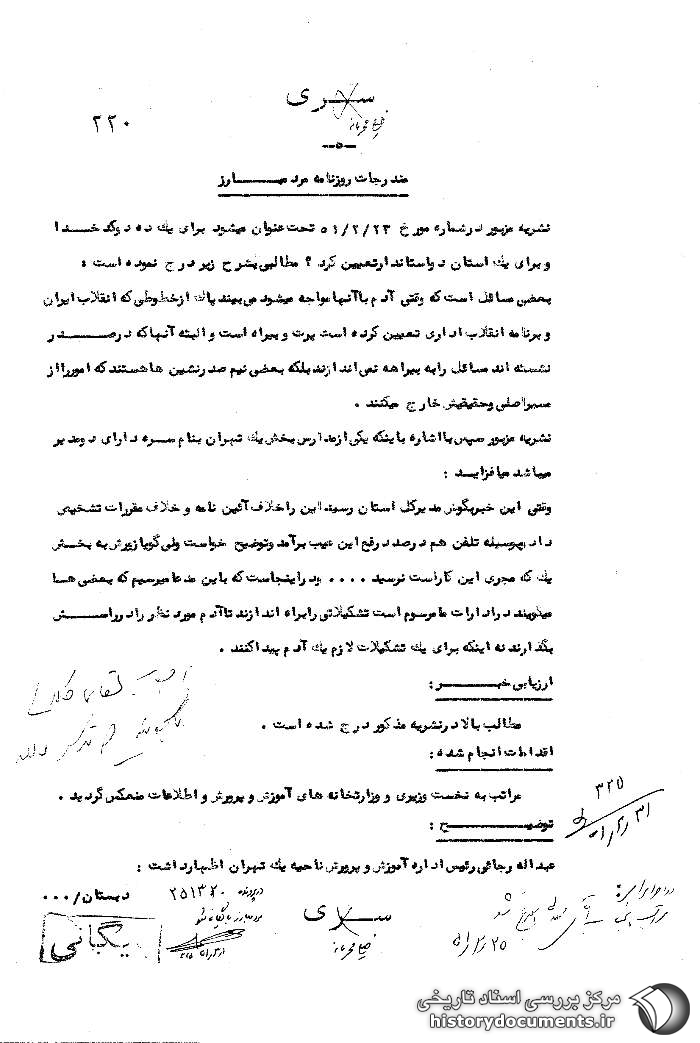 سری
خیلی محرمانه
۲۲۰
-۵-
مندرجات روزنامه مرد مبارز
نشریه مزبور در شماره مورخ ۵۱/۲/۲۳ تحت عنوان میشود برای یك ده دو کدخدا
و برای یك استان دو استاندار تعیین کرد ؟ مطالبی بشرح زیر درج نموده است :
بعضی مسائل است که وقتی آدم با آنها مواجه میشود می بیند پاك از خطوطی که انقلاب ایران
و برنامه انقلاب اداری تعیین کرده است پرت و بیراه است و البته آنها که در صدر
نشسته اند مسائل را به بیراهه نمی اندازند بلکه بعضی نیم صدر نشین ها هستند که امور را از
مسیر اصلی و حقیقیش خارج میکنند .
نشریه مزبور سپس با اشاره باینکه یکی از مدارس بخش یك تهران بنام سره دارای دو مدیر
میباشد میافزاید :
وقتی این خبر بگوش مدیر کل استان رسید این را خلاف آئین نامه و خلاف مقررات تشخیص
داد و بوسیله تلفن هم در صدد رفع این عیب برآمد و توضیح خواست ولی گویا زورش به بخش
یك که مجری این کار است نرسید .... ود راینجاست که باین مدعا میرسیم که بعضی ها
میگویند در ادارات ما مرسوم است تشکیلاتی را براه اندازند تا آدم مورد نظر را در راسش
بگذارند نه اینکه برای یك تشکیلات لازم یك آدم پیدا کنند .
ارزیابی خبر :
مطالب بالا در نشریه مذکور درج شده است .
اقدامات انجام شده :
مراتب به نخست وزیری و وزارتخانه های آموزش و پرورش و اطلاعات منعکس گردید .
۳۲۵
۵۱/۲/۳۱
توضیح :
عبداله رجائی رئیس اداره آموزش و پرورش ناحیه یك تهران اظهار داشت :
دبستان/...
در پرونده ۲۵۱۳۲۰
بایگانی
سری
خیلی محرمانه
۵۱/۲/۲۵
مرکز بررسی اسناد تاریخی
historydocuments.ir